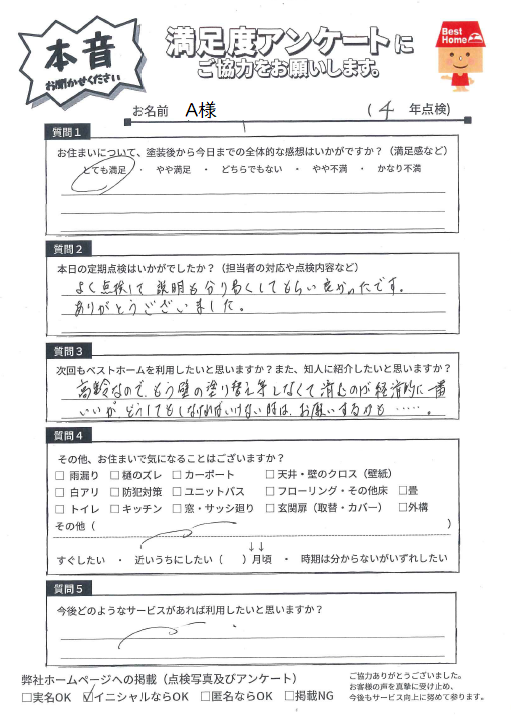 本音
お聞かせください
満足度アンケートに
ご協力をお願いします。
Best Home
お名前 A様 (4 年点検)
質問1
お住まいについて、塗装後から今日までの全体的な感想はいかがですか？（満足感など）
とても満足 ・ やや満足 ・ どちらでもない ・ やや不満 ・ かなり不満
質問2
本日の定期点検はいかがでしたか？（担当者の対応や点検内容など）
よく点検して、説明も分り易くしてもらい良かったです。
ありがとうございました。
質問3
次回もベストホームを利用したいと思いますか？また、知人に紹介したいと思いますか？
高齢なので、もう壁の塗り替え等しなくて済むのが経済的に一番
いいが、どうしてもしなければいけない時は、お願いするかも……。
質問4
その他、お住まいで気になることはございますか？
□ 雨漏り □ 樋のズレ □ カーポート □ 天井・壁のクロス（壁紙）
□ 白アリ □ 防犯対策 □ ユニットバス □ フローリング・その他床 □畳
□ トイレ □ キッチン □ 窓・サッシ廻り □ 玄関扉（取替・カバー） □外構
その他（ ）
↓↓
すぐしたい ・ 近いうちにしたい（ ）月頃 ・ 時期は分からないがいずれしたい
質問5
今後どのようなサービスがあれば利用したいと思いますか？
弊社ホームページへの掲載（点検写真及びアンケート）
□実名OK ☑イニシャルならOK □匿名ならOK □掲載NG
ご協力ありがとうございました。
お客様の声を真摯に受け止め、
今後もサービス向上に努めて参ります。